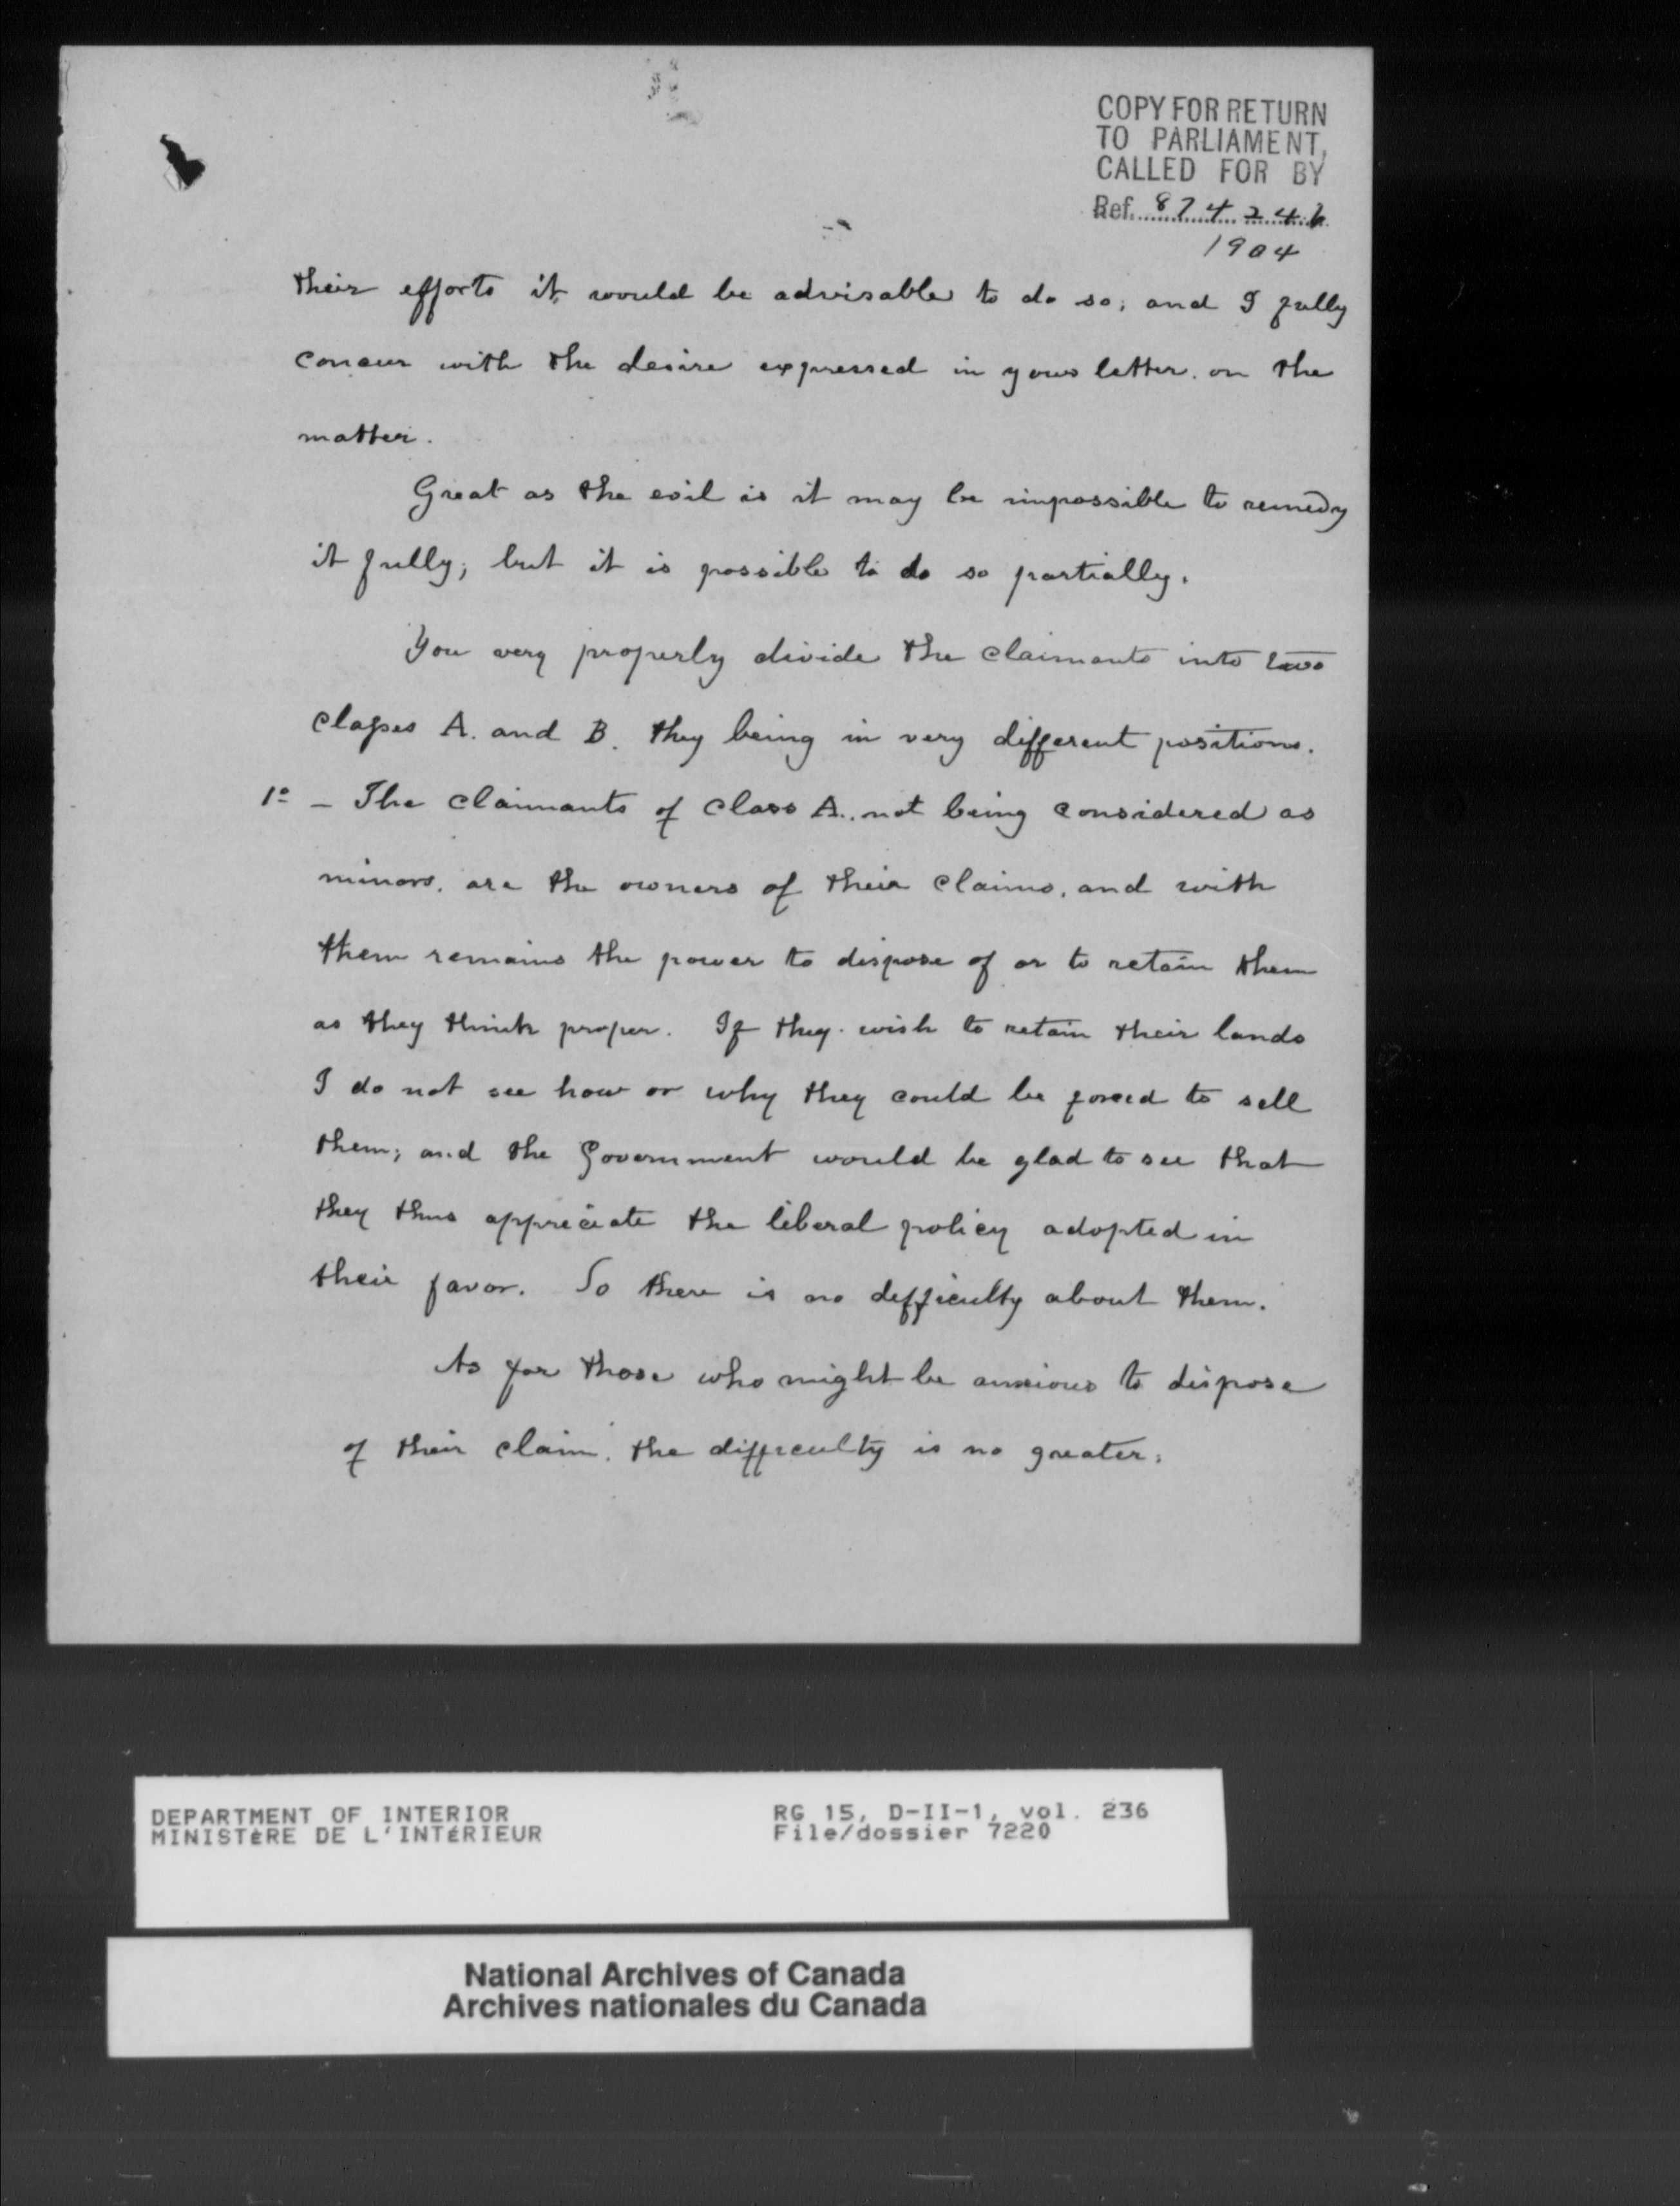 COPY FOR RETURN
TO PARLIAMENT,
CALLED FOR BY
Ref. 874246
1904
their efforts it would be advisable to do so; and I fully
concur with the desire expressed in your letter. on the
matter.
Great as the evil is it may be impossible to remedy
it fully; but it is possible to do so partially.
You very properly divide the claimants into two
classes A. and B. they being in very different positions.
1º - The claimants of class A. not being considered as
minors. are the owners of their claims, and with
them remains the power to dispose of or to retain them
as they think proper. If they wish to retain their lands
I do not see how or why they could be forced to sell
them; and the Government would be glad to see that
they thus appreciate the liberal policy adopted in
their favor. So there is no difficulty about them.
As for those who might be anxious to dispose
of their claim. the difficulty is no greater;
DEPARTMENT OF INTERIOR
MINISTÈRE DE L'INTÉRIEUR
RG 15, D-II-1, vol. 236
File/dossier 7220
National Archives of Canada
Archives nationales du Canada